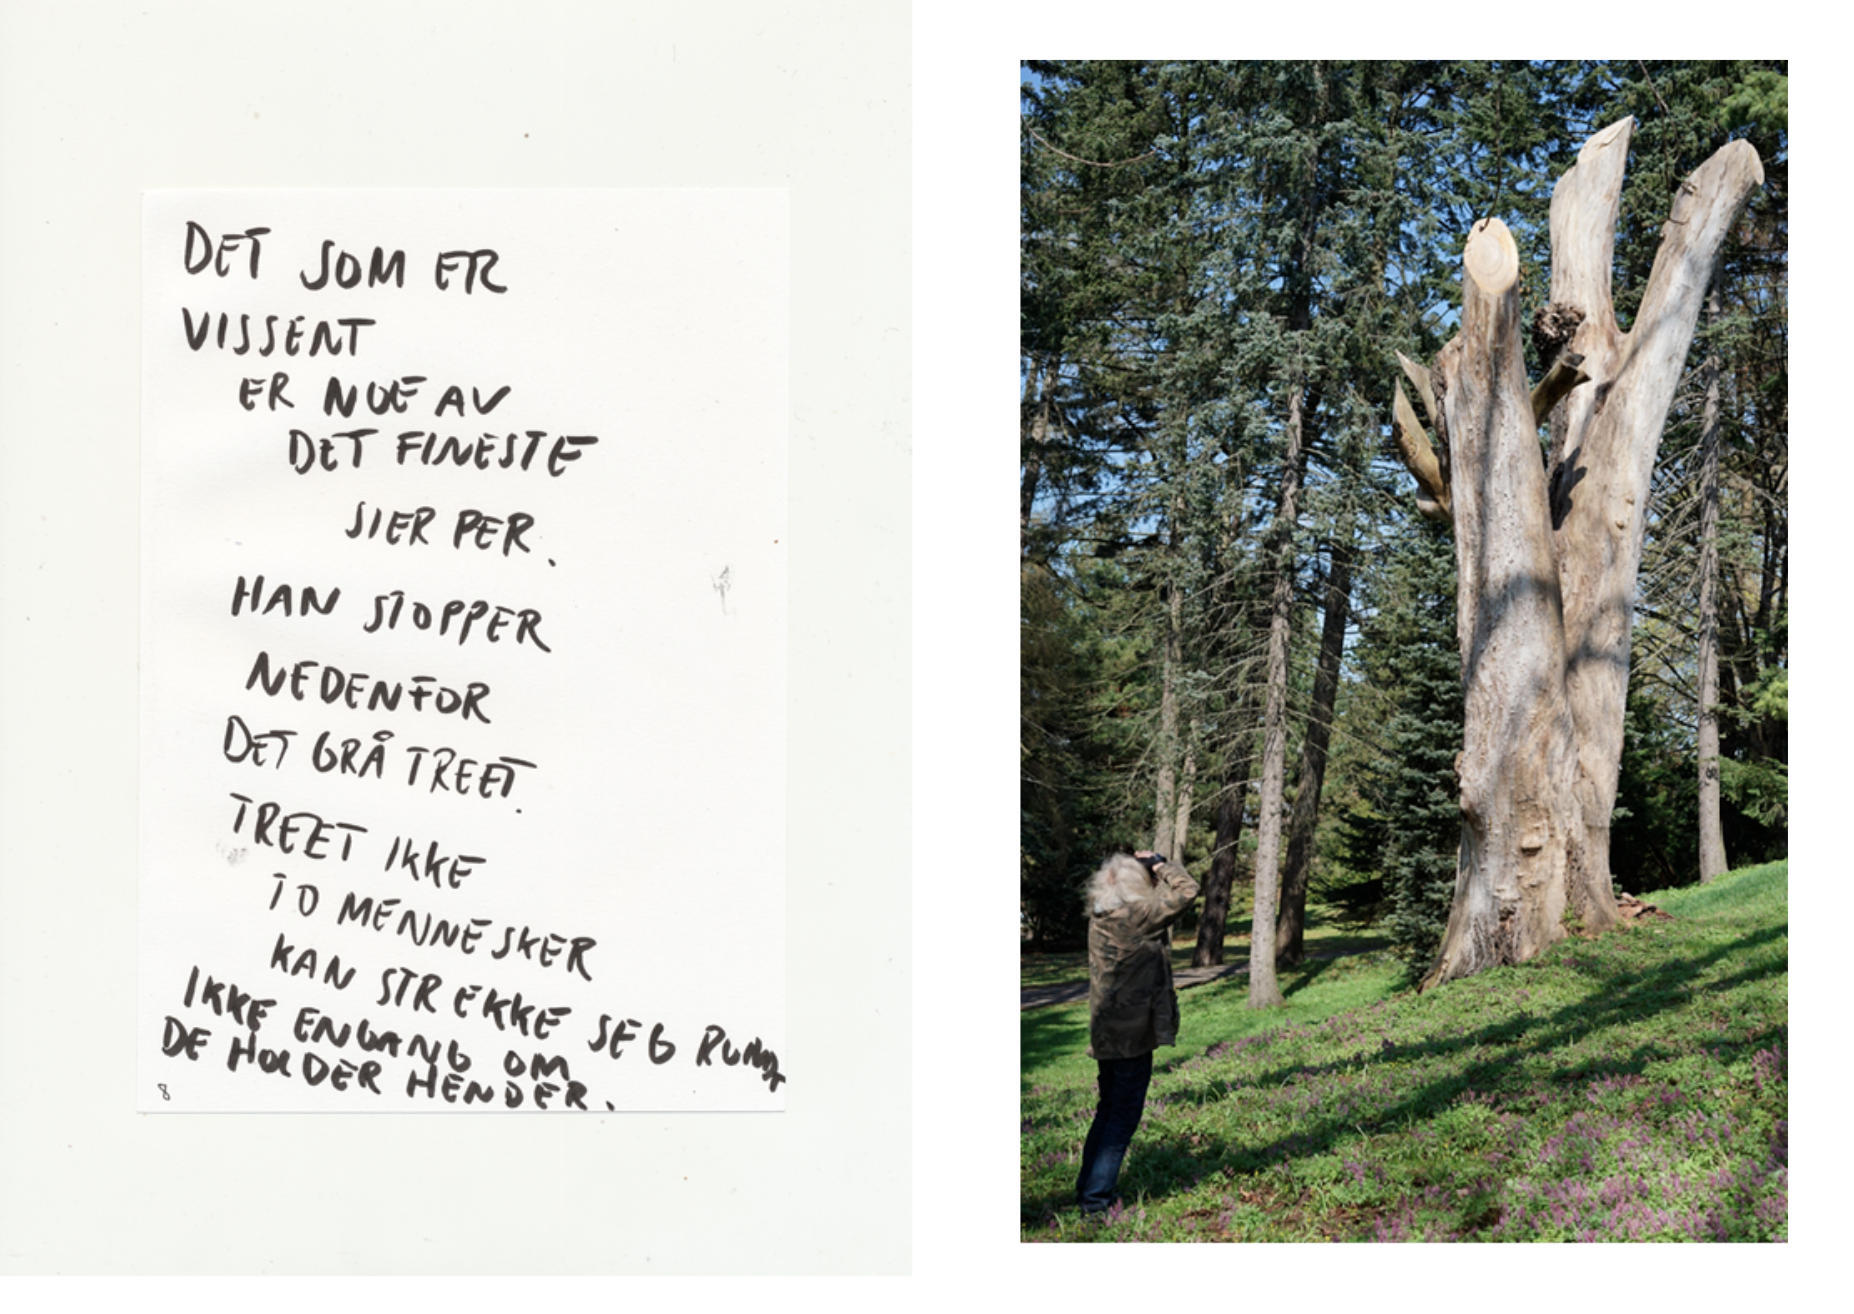 DET SOM ER
VISSENT
ER NOE AV
DET FINESTE
SIER PER.
HAN STOPPER
NEDENFOR
DET GRÅ TREET.
TREET IKKE
TO MENNESKER
KAN STREKKE SEG RUNDT
IKKE ENGANG OM
DE HOLDER HENDER.
8